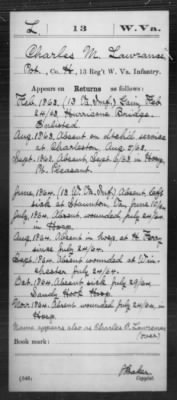 L 13 W.Va.
Charles M. Lawrance
Pvt., Co. H, 13 Reg't W. Va. Infantry.
Appears on Returns as follows:
Feb. 1863, (13 Va. Inf.) Gain, Feb.
24/63, Hurricane Bridge,
Enlisted
Aug. 1863, Absent on detchd service
at Charleston, Aug. 5/63.
Sept. 1863, Absent, Sept. 6/63 in Hosp.
Pt. Pleasant.
June 1864, (13 W. Va. Inf.) Absent left
sick at Staunton, Va., June 10/64
July 1864, Absent wounded July 24/64
in Hosp.
Aug. 1864, Absent in hosp. at H. Ferry
since July 24/64.
Sept. 1864, Absent wounded at Win-
chester July 24/64.
Oct. 1864, Absent, sick July 29/64
Sandy Hook Hosp.
Nov. 1864, Absent wounded July 24/64 in
Hosp.
Name appears also as Charles Lawrence
(over)
Book mark:
(546)
Baker
Copyist.